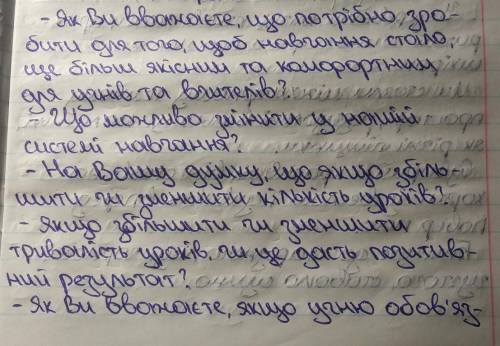 - Як Ви вважаєте, що потрібно зро-
бити для того, щоб навчання стало
ще більш якісним та комфортним
для учнів та вчителів?
- Що можливо змінити у нашій
системі навчання?
- На Вашу думку, що якщо збіль-
шити чи зменшити кількість уроків?
- Якщо збільшити чи зменшити
тривалість уроків, чи це дасть позитив-
ний результат?
- Як Ви вважаєте, якщо учню обов'яз-